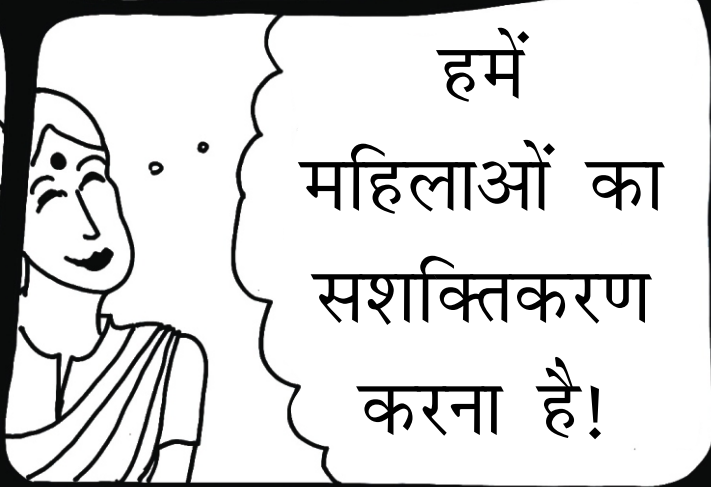 हमें
महिलाओं का
सशक्तिकरण
करना है!